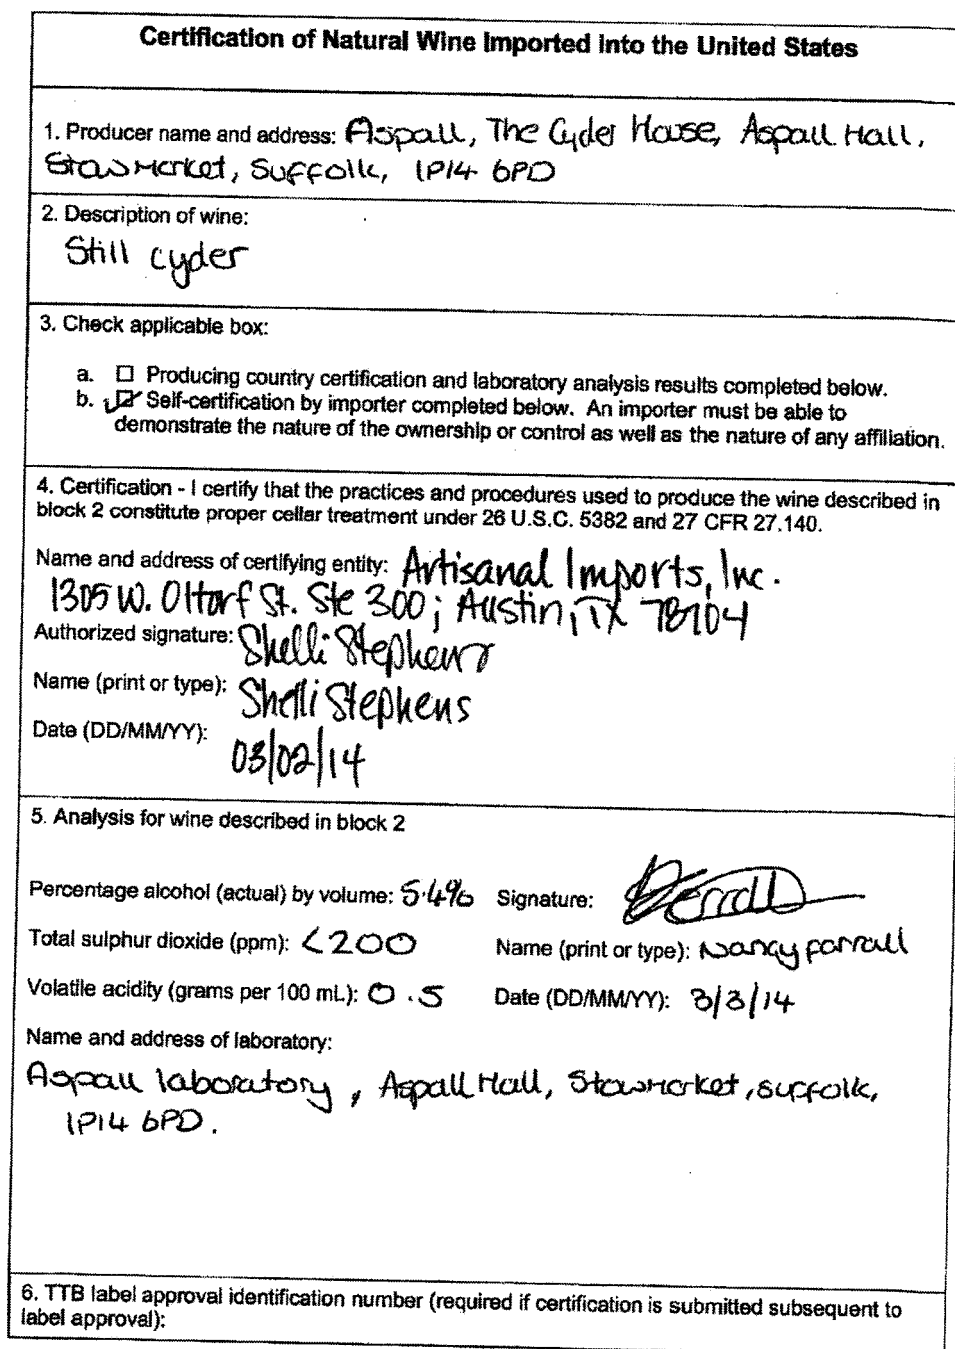 Certification of Natural Wine Imported into the United States
1. Producer name and address: Aspall, The Cyder House, Aspall Hall,
Stowmarket, Suffolk, IP14 6PD
2. Description of wine:
Still cyder
3. Check applicable box:
a. ☐ Producing country certification and laboratory analysis results completed below.
b. ☑ Self-certification by importer completed below. An importer must be able to
demonstrate the nature of the ownership or control as well as the nature of any affiliation.
4. Certification - I certify that the practices and procedures used to produce the wine described in
block 2 constitute proper cellar treatment under 26 U.S.C. 5382 and 27 CFR 27.140.
Name and address of certifying entity: Artisanal Imports, Inc.
1305 W. Oltorf St. Ste 300; Austin, TX 78704
Authorized signature: Shelli Stephens
Name (print or type): Shelli Stephens
Date (DD/MM/YY): 03/02/14
5. Analysis for wine described in block 2
Percentage alcohol (actual) by volume: 5.4% Signature:
Total sulphur dioxide (ppm): <200 Name (print or type): Nancy Farrall
Volatile acidity (grams per 100 mL): 0.5 Date (DD/MM/YY): 3/3/14
Name and address of laboratory:
Aspall laboratory, Aspall Hall, Stowmarket, Suffolk,
IP14 6PD.
6. TTB label approval identification number (required if certification is submitted subsequent to
label approval):